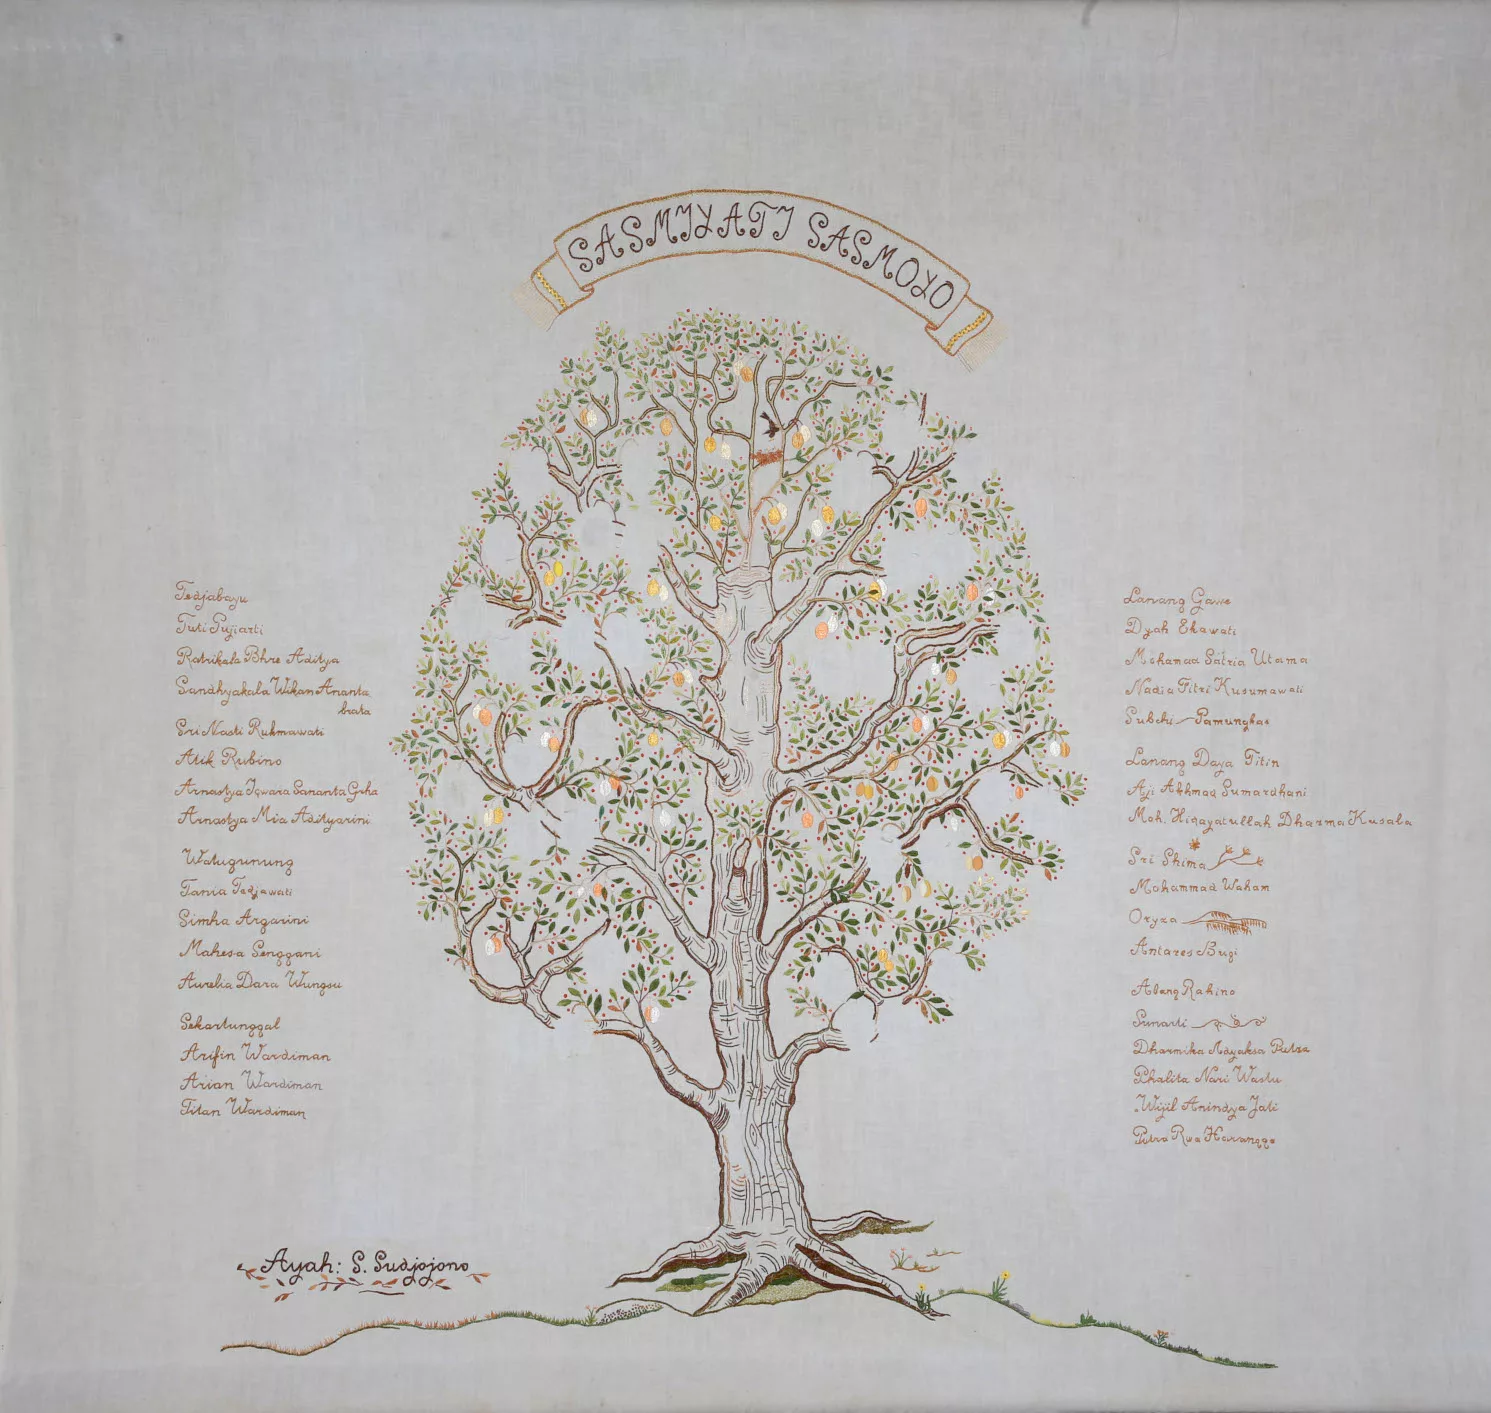 SASMIYATI SASMOYO
Tedjabayu
Tuti Pujiarti
Ratrikala Bhre Aditya
Sandhyakala Wikan Ananta
brata
Sri Nasti Rukmawati
Atik Rubino
Arnastya Iswara Sananta Graha
Arnastya Mia Adityarini
Watugunung
Tania Tedjawati
Simha Argarini
Mahesa Senggani
Aurelia Dara Wungsu
Sekartunggal
Arifin Wardiman
Arian Wardiman
Titan Wardiman
Lanang Gawe
Dyah Ekawati
Mohamad Satria Utama
Nadia Fitri Kusumawati
Subchi Pamungkas
Lanang Daya Titin
Aji Akhmad Sumardhani
Moh. Hidayatullah Dharma Kusala
Sri Shima
Mohammad Waham
Oryza
Antares Bugi
Abang Rahino
Sunarti
Dharmika Adyaksa Putra
Phalita Nari Wastu
Wijil Anindya Jati
Putra Rwa Haranggo
Ayah: S. Sudjojono